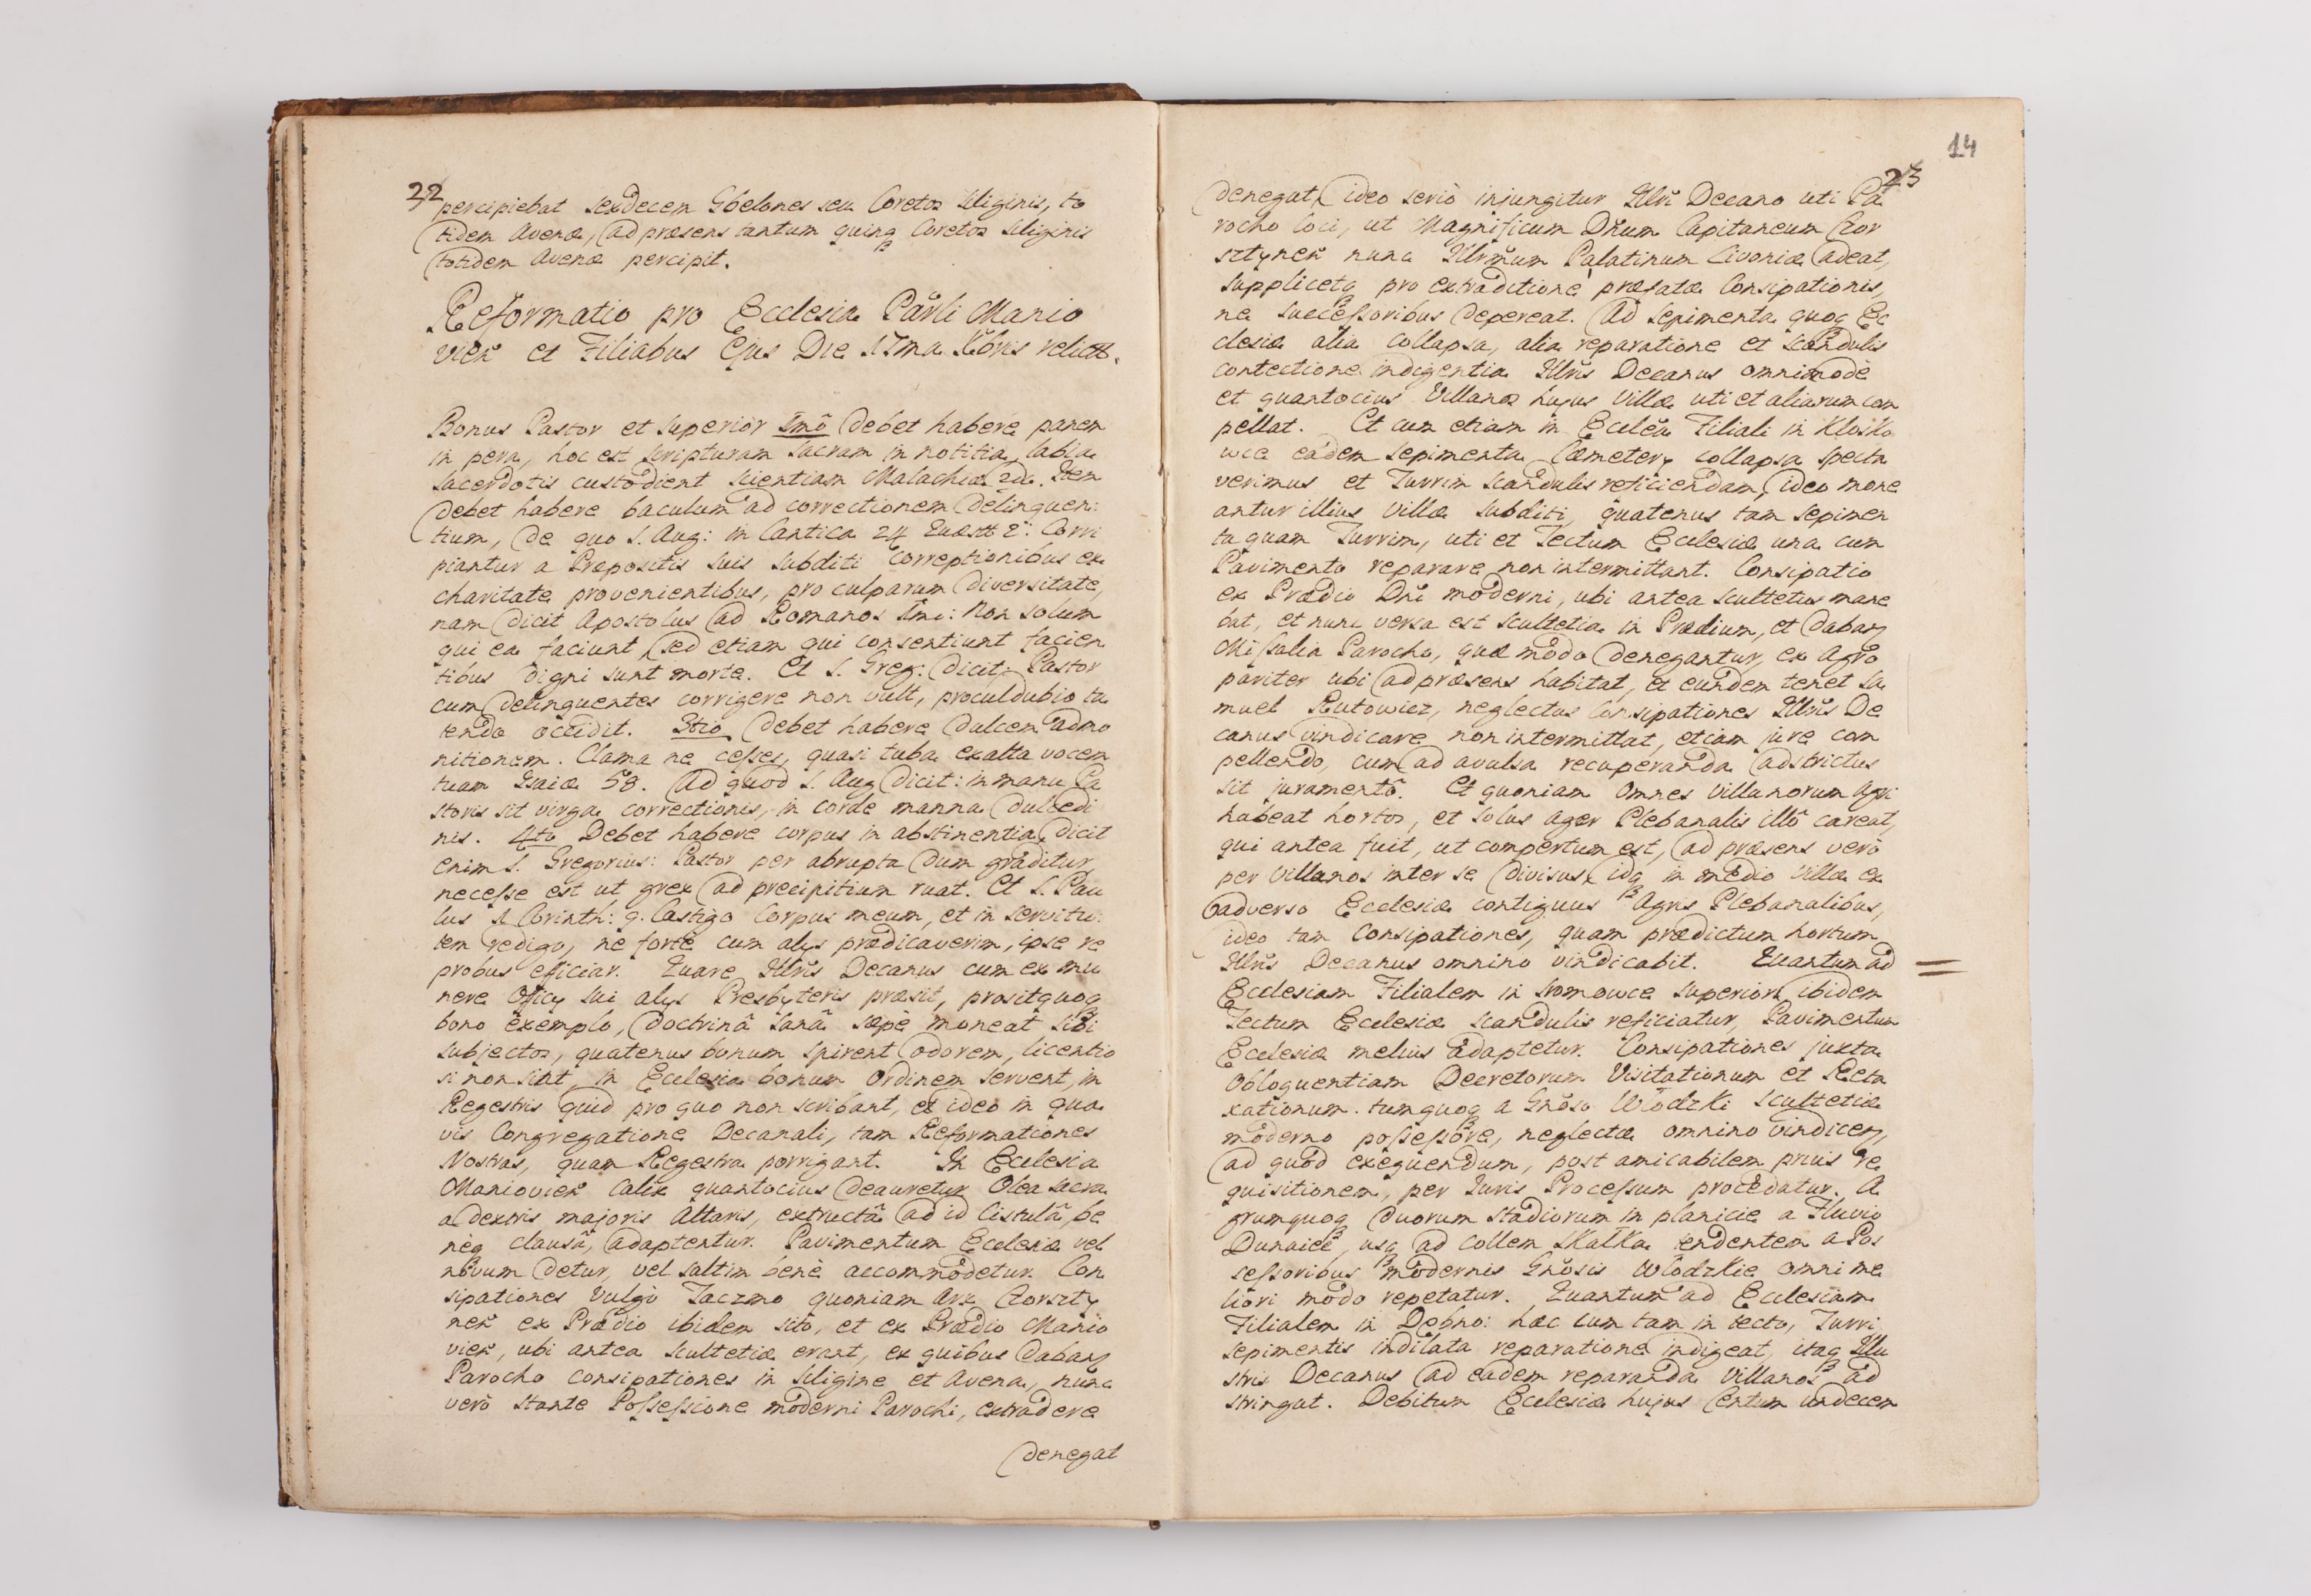 22
percipiebat sexdecem Gbelones seu Coretos Siliginis, to
tidem Avenæ, ad præsens tantum quinq Coretos Siliginis
totidem Avenæ percipit.
Reformatio pro Ecclesia Parli Manio
vien et Filiabus Ejus Die 17ma Xbris relicta.
Bonus Pastor et Superior Imô Debet habere panem
in pera, hoc est Scripturam Sacram in notitia, labia
Sacerdotis custodient Scientiam Malachiæ 2do. Item
Debet habere baculum ad correctionem Delinquen:
tium, De quo S. Aug: in Cantica 24 Quæst 2: Corri
piantur a Præpositis Suis Subditi Correptionibus ex
charitate provenientibus, pro culparum Diversitate,
nam Dicit Apostolus ad Romanos Imo: Non Solum
qui ea faciunt, sed etiam qui consentiunt facien
tibus Digni sunt morte. Et S. Greg: Dicit: Pastor
cum Delinquentes corrigere non vult, proculdubio ta
cendo occidit. 3tio Debet habere Dulcem admo
nitionem. Clama ne cesses, quasi tuba exalta vocem
tuam Isaiæ 58. Ad quod S. Aug Dicit: in manu Pa
storis sit virga correctionis, in corde manna Dulcedi
nis. 4to Debet habere corpus in abstinentia, Dicit
enim S. Gregorius: Pastor per abrupta Dum graditur
necesse est ut grex ad precipitium ruat. Et S. Pau
lus 1. Corinth: 9. Castigo Corpus meum, et in Servitu:
tem redigo, ne forte cum alys prædicaverim, ipse re
probus efficiar. Quare Illris Decanus cum ex mu
nere Officy sui alys Presbyteris præsit, prositquoq
bono exemplo, Doctrinâ Sanâ sæpè moneat Sibi
Subjectos, quatenus bonum Spirent odorem, licentio
si non sint, in Ecclesia bonum Ordinem Servent, in
Regestris quid pro quo non scribant, et ideo in qua
vis Congregatione Decanali, tam Reformationes
Nostras, quam Regestra porrigant. In Ecclesia
Maniovien Calix quantocius Deauretur Olea Sacra
a dextris majoris Altaris, extructâ ad id Cistulâ, be
nèq clausâ, adaptentur. Pavimentum Ecclesiæ vel
novum Detur, vel Saltim benè accommodetur. Con
sipationes Vulgo Taczmo quoniam Arx Czorszty
nen ex Prædio ibidem sito, et ex Prædio Manio
vien, ubi antea Scultetiæ erant, ex quibus Dabany
Parocho Consipationes in Siligine et Avena, nunc
verò Stante Possessione moderni Parochi, extradere
Denegat
14
23
Denegat, ideo seriò injungitur Illri Decano uti Pa
rocho Loci, ut Magnificum Dnum Capitaneum Czor
sztynen nunc Illrmum Palatinum Livoniæ adeat,
Supplicetq pro extraditione præfatæ Consipationis,
ne Successoribus Depereat. Ad Sepimenta quoq Ec
clesiæ alia Collapsa, alia reparatione et Scandulis
contectione indigentia Illris Decanus omnimodè
et quantocius Villanos hujus Villæ uti et aliarum com
pellat. Et cum etiam in Ecclea Filiali in Klosko
wce eadem Sepimenta Cæmetery Collapsa Specta
verimus et Turrim Scandulis reficiendam, ideo mone
antur illius Villæ Subditi, quatenus tam Sepimen
ta quam Turrim, uti et Tectum Ecclesiæ una cum
Pavimento reparare non intermittant. Consipatio
ex Prædio Dni moderni, ubi antea Scultetus mane
bat, et nunc versa est Scultetia in Prædium, et Dabany
Missalia Parocho, quæ modo Denegantur, ex Agro
pariter ubi ad præsens habitat, et eundem tenet Sa
muel Rutowicz, neglectas Consipationes Illris De
canus vindicare non intermittat, etiam jure com
pellendo, cum ad avulsa recuperanda adstrictus
sit juramentô. Et quoniam Omnes Villanorum Agri
habeat hortos, et Solus Ager Plebanalis illô careat,
qui antea fuit, ut compertum est, ad præsens verò
per Villanos inter se Divisus, idq in medio Villæ ex
adverso Ecclesiæ contiguus Agris Plebanalibus,
ideo tam Consipationes, quam prædictum hortum
Illris Decanus omnino vindicabit. Quantum ad
Ecclesiam Filialem in Sromowce Superiori ibidem
Tectum Ecclesiæ Scandulis reficiatur, Pavimentum
Ecclesiæ melius adaptetur. Consipationes juxta
Obloquentiam Decretorum Visitationum et Reta
xationum. tumquoq a Gnôso Wlodzki Scultetiæ
moderno possessore, neglectæ omnino vindiceny,
ad quod exequendum, post amicabilem prius re
quisitionem, per Juris Processum procedatur. A
grumquoq Duorum Stadiorum in planicie a Fluvio
Dunaiec, usq ad Collem Skałka tendentem a Pos
sessoribus modernis Gnôsis Wlodzkie omni me
liori modo repetatur. Quantum ad Ecclesiam
Filialem in Debno: hæc cum tam in tecto, Turri
Sepimentis indilata reparatione indigeat, itaq Illu
stris Decanus ad eadem reparanda Villanos ad
stringat. Debitum Ecclesiæ hujus Centum undecem